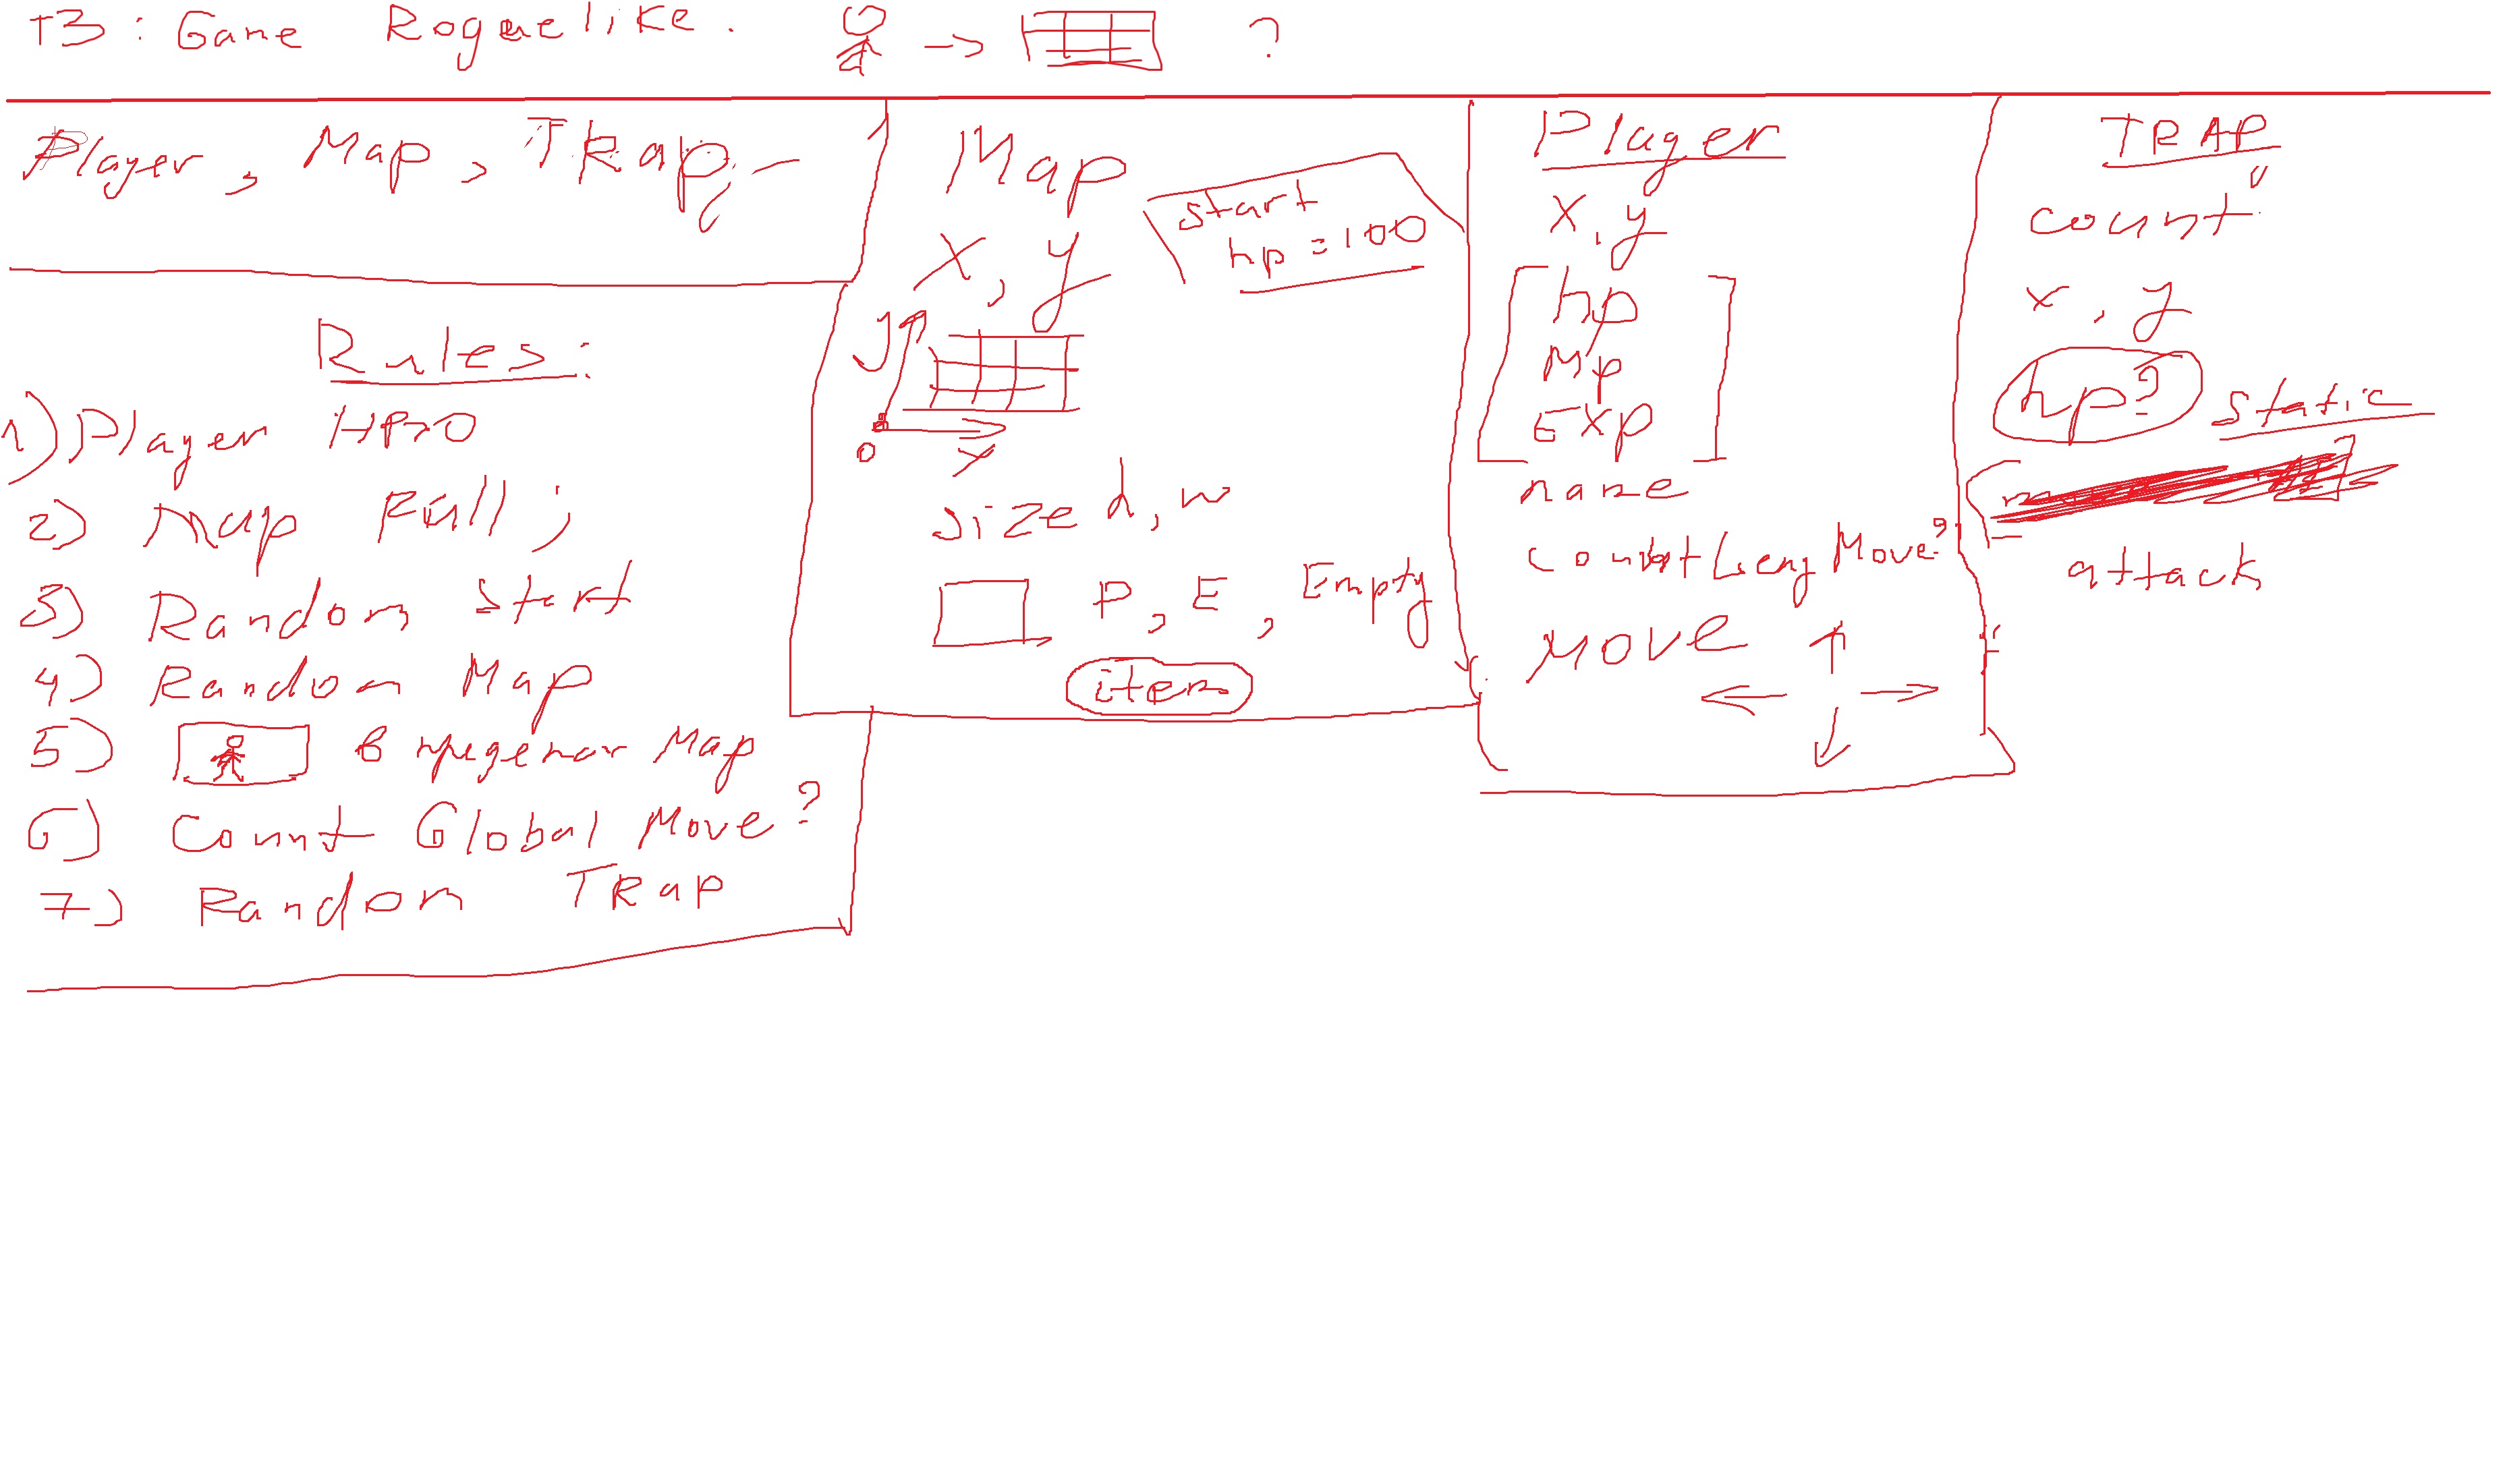 ТЗ: Game Roguelike. ?
Player, Map, TRap,
Rules:
1) Player HP>0
2) Map Full;
3) Random Start
4) Random Map
5) в пределах Map
6) Count Global Move?
7) Random TRap
Map
x, y
Start
hp = 100
y
0
Size h, w
P, E, Empty
item
Player
x, y
hp
Mp
Exp
name
Count Move?
MOVE
TRAP
count
x, y
hp?
Static
attack